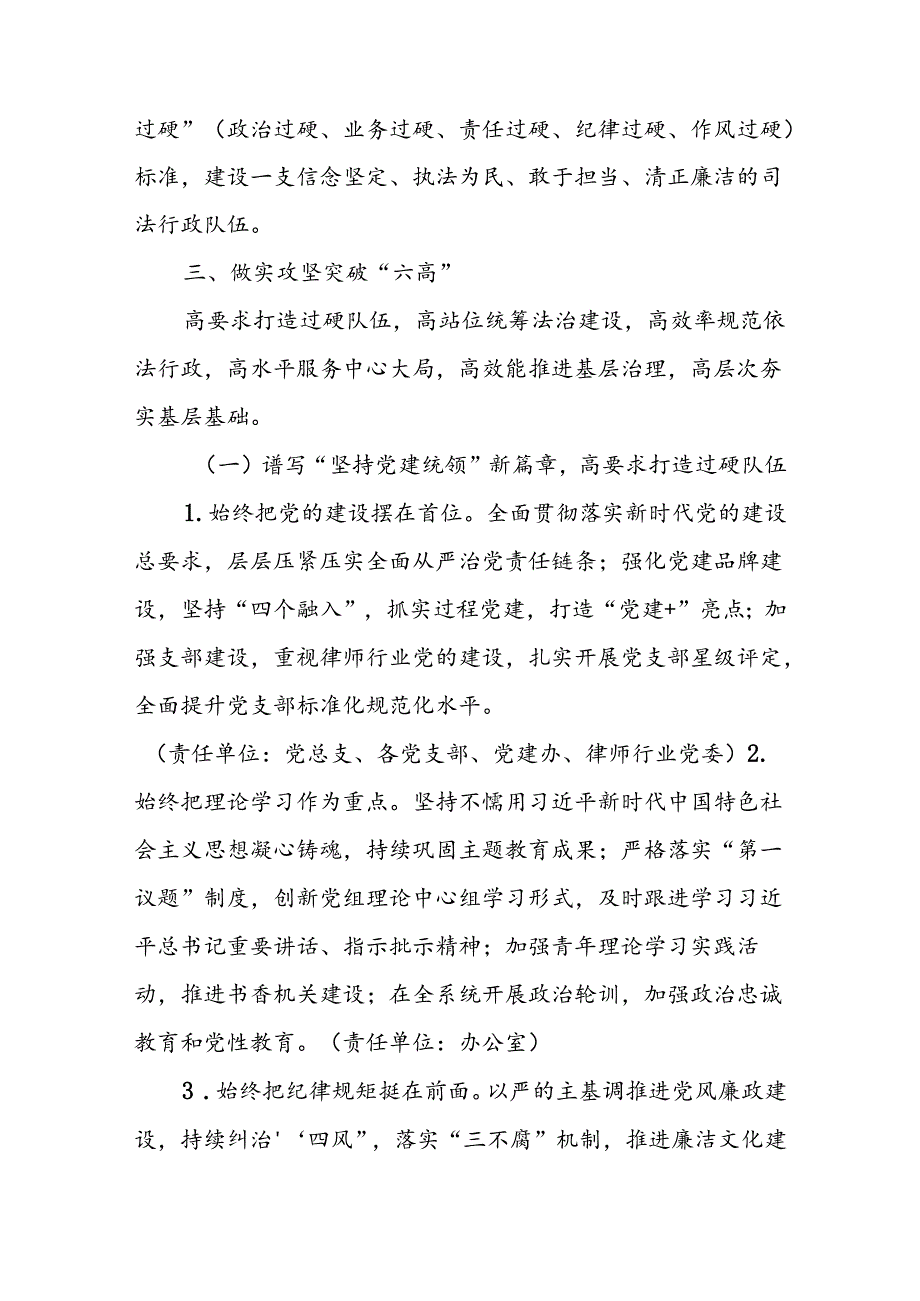 过硬”（政治过硬、业务过硬、责任过硬、纪律过硬、作风过硬）
标准，建设一支信念坚定、执法为民、敢于担当、清正廉洁的司
法行政队伍。
三、做实攻坚突破“六高”
高要求打造过硬队伍，高站位统筹法治建设，高效率规范依
法行政，高水平服务中心大局，高效能推进基层治理，高层次夯
实基层基础。
（一）谱写“坚持党建统领”新篇章，高要求打造过硬队伍
1.始终把党的建设摆在首位。全面贯彻落实新时代党的建设
总要求，层层压紧压实全面从严治党责任链条；强化党建品牌建
设，坚持“四个融入”，抓实过程党建，打造“党建+”亮点；加
强支部建设，重视律师行业党的建设，扎实开展党支部星级评定，
全面提升党支部标准化规范化水平。
（责任单位：党总支、各党支部、党建办、律师行业党委）2.
始终把理论学习作为重点。坚持不懦用习近平新时代中国特色社
会主义思想凝心铸魂，持续巩固主题教育成果；严格落实“第一
议题”制度，创新党组理论中心组学习形式，及时跟进学习习近
平总书记重要讲话、指示批示精神；加强青年理论学习实践活
动，推进书香机关建设；在全系统开展政治轮训，加强政治忠诚
教育和党性教育。（责任单位：办公室）
3 .始终把纪律规矩挺在前面。以严的主基调推进党风廉政建
设，持续纠治'‘四风”，落实“三不腐”机制，推进廉洁文化建